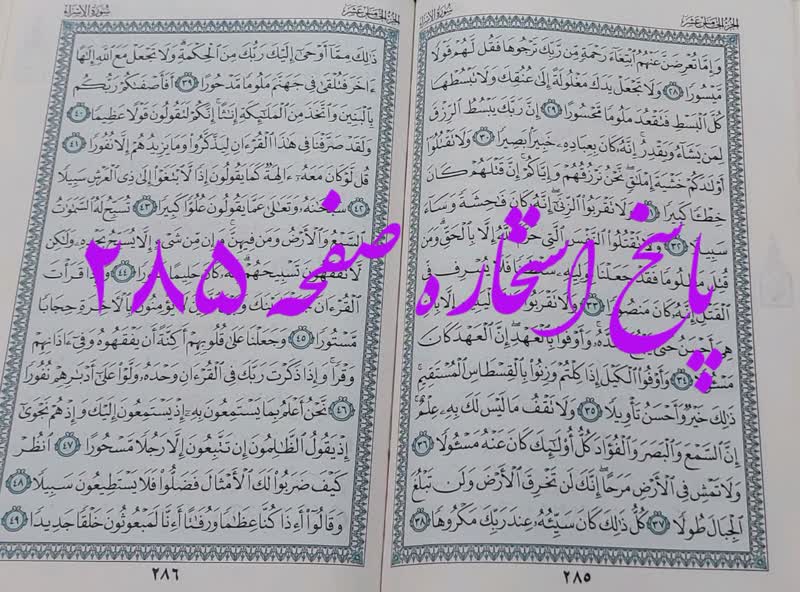 الجزء الخامس عشر
سورة الإسراء
وَإِمَّا تُعْرِضَنَّ عَنْهُمُ ٱبْتِغَآءَ رَحْمَةٍ مِّن رَّبِّكَ تَرْجُوهَا فَقُل لَّهُمْ قَوْلًا
مَّيْسُورًا ٢٨ وَلَا تَجْعَلْ يَدَكَ مَغْلُولَةً إِلَىٰ عُنُقِكَ وَلَا تَبْسُطْهَا
كُلَّ ٱلْبَسْطِ فَتَقْعُدَ مَلُومًا مَّحْسُورًا ٢٩ إِنَّ رَبَّكَ يَبْسُطُ ٱلرِّزْقَ
لِمَن يَشَآءُ وَيَقْدِرُ إِنَّهُۥ كَانَ بِعِبَادِهِۦ خَبِيرًۢا بَصِيرًا ٣٠ وَلَا تَقْتُلُوٓا۟
أَوْلَٰدَكُمْ خَشْيَةَ إِمْلَٰقٍ نَّحْنُ نَرْزُقُهُمْ وَإِيَّاكُمْ إِنَّ قَتْلَهُمْ كَانَ
خِطْـًٔا كَبِيرًا ٣١ وَلَا تَقْرَبُوا۟ ٱلزِّنَىٰٓ إِنَّهُۥ كَانَ فَٰحِشَةً وَسَآءَ
سَبِيلًا ٣٢ وَلَا تَقْتُلُوا۟ ٱلنَّفْسَ ٱلَّتِى حَرَّمَ إِلَّا بِٱلْحَقِّ وَمَن
قُتِلَ مَظْلُومًا فَقَدْ جَعَلْنَا لِوَلِيِّهِۦ فَلَا يُسْرِف فِّى
ٱلْقَتْلِ إِنَّهُۥ كَانَ مَنصُورًا ٣٣ وَلَا تَقْرَبُوا۟ إِلَّا
هِىَ أَحْسَنُ حَتَّىٰ وَأَوْفُوا۟ بِٱلْعَهْدِ إِنَّ ٱلْعَهْدَ كَانَ
مَسْـُٔولًا ٣٤ وَأَوْفُوا۟ ٱلْكَيْلَ إِذَا كِلْتُمْ وَزِنُوا۟ بِٱلْقِسْطَاسِ ٱلْمُسْتَقِيمِ
ذَٰلِكَ خَيْرٌ وَأَحْسَنُ تَأْوِيلًا ٣٥ وَلَا تَقْفُ مَا لَيْسَ لَكَ بِهِۦ عِلْمٌ
إِنَّ ٱلسَّمْعَ وَٱلْبَصَرَ وَٱلْفُؤَادَ كُلُّ أُو۟لَٰٓئِكَ كَانَ عَنْهُ مَسْـُٔولًا ٣٦
وَلَا تَمْشِ فِى ٱلْأَرْضِ مَرَحًا إِنَّكَ لَن تَخْرِقَ ٱلْأَرْضَ وَلَن تَبْلُغَ
ٱلْجِبَالَ طُولًا ٣٧ كُلُّ ذَٰلِكَ كَانَ سَيِّئُهُۥ عِندَ رَبِّكَ مَكْرُوهًا ٣٨
٢٨٥
الجزء الخامس عشر
سورة الإسراء
ذَٰلِكَ مِمَّآ أَوْحَىٰٓ إِلَيْكَ رَبُّكَ مِنَ ٱلْحِكْمَةِ وَلَا تَجْعَلْ مَعَ ٱللَّهِ إِلَٰهًا
ءَاخَرَ فَتُلْقَىٰ فِى جَهَنَّمَ مَلُومًا مَّدْحُورًا ٣٩ أَفَأَصْفَىٰكُمْ رَبُّكُم
بِٱلْبَنِينَ وَٱتَّخَذَ مِنَ ٱلْمَلَٰٓئِكَةِ إِنَٰثًا إِنَّكُمْ لَتَقُولُونَ قَوْلًا عَظِيمًا ٤٠
وَلَقَدْ صَرَّفْنَا فِى هَٰذَا ٱلْقُرْءَانِ لِيَذَّكَّرُوا۟ وَمَا يَزِيدُهُمْ إِلَّا نُفُورًا ٤١
قُل لَّوْ كَانَ مَعَهُۥٓ ءَالِهَةٌ كَمَا يَقُولُونَ إِذًا لَّٱبْتَغَوْا۟ إِلَىٰ ذِى ٱلْعَرْشِ سَبِيلًا
٤٢ سُبْحَٰنَهُۥ وَتَعَٰلَىٰ عَمَّا يَقُولُونَ عُلُوًّا كَبِيرًا ٤٣ تُسَبِّحُ لَهُ ٱلسَّمَٰوَٰتُ
ٱلسَّبْعُ وَٱلْأَرْضُ وَمَن فِيهِنَّ وَإِن مِّن شَىْءٍ إِلَّا يُسَبِّحُ بِحَمْدِهِۦ وَلَٰكِن
لَّا تَفْقَهُونَ تَسْبِيحَهُمْ إِنَّهُۥ كَانَ حَلِيمًا ٤٤ وَإِذَا قَرَأْتَ
ٱلْقُرْءَانَ ٱلَّذِينَ لَا يُؤْمِنُونَ بِٱلْءَاخِرَةِ حِجَابًا
مَّسْتُورًا ٤٥ وَجَعَلْنَا عَلَىٰ قُلُوبِهِمْ أَكِنَّةً أَن يَفْقَهُوهُ وَفِىٓ ءَاذَانِهِمْ
وَقْرًا وَإِذَا ذَكَرْتَ رَبَّكَ فِى ٱلْقُرْءَانِ وَحْدَهُۥ وَلَّوْا۟ عَلَىٰٓ أَدْبَٰرِهِمْ نُفُورًا
٤٦ نَّحْنُ أَعْلَمُ بِمَا يَسْتَمِعُونَ بِهِۦٓ إِذْ يَسْتَمِعُونَ إِلَيْكَ وَإِذْ هُمْ نَجْوَىٰٓ
إِذْ يَقُولُ ٱلظَّٰلِمُونَ إِن تَتَّبِعُونَ إِلَّا رَجُلًا مَّسْحُورًا ٤٧ ٱنظُرْ
كَيْفَ ضَرَبُوا۟ لَكَ ٱلْأَمْثَالَ فَضَلُّوا۟ فَلَا يَسْتَطِيعُونَ سَبِيلًا ٤٨
وَقَالُوٓا۟ أَءِذَا كُنَّا عِظَٰمًا وَرُفَٰتًا أَءِنَّا لَمَبْعُوثُونَ خَلْقًا جَدِيدًا ٤٩
٢٨٦
پاسخ استخاره صفحه ۲۸۵